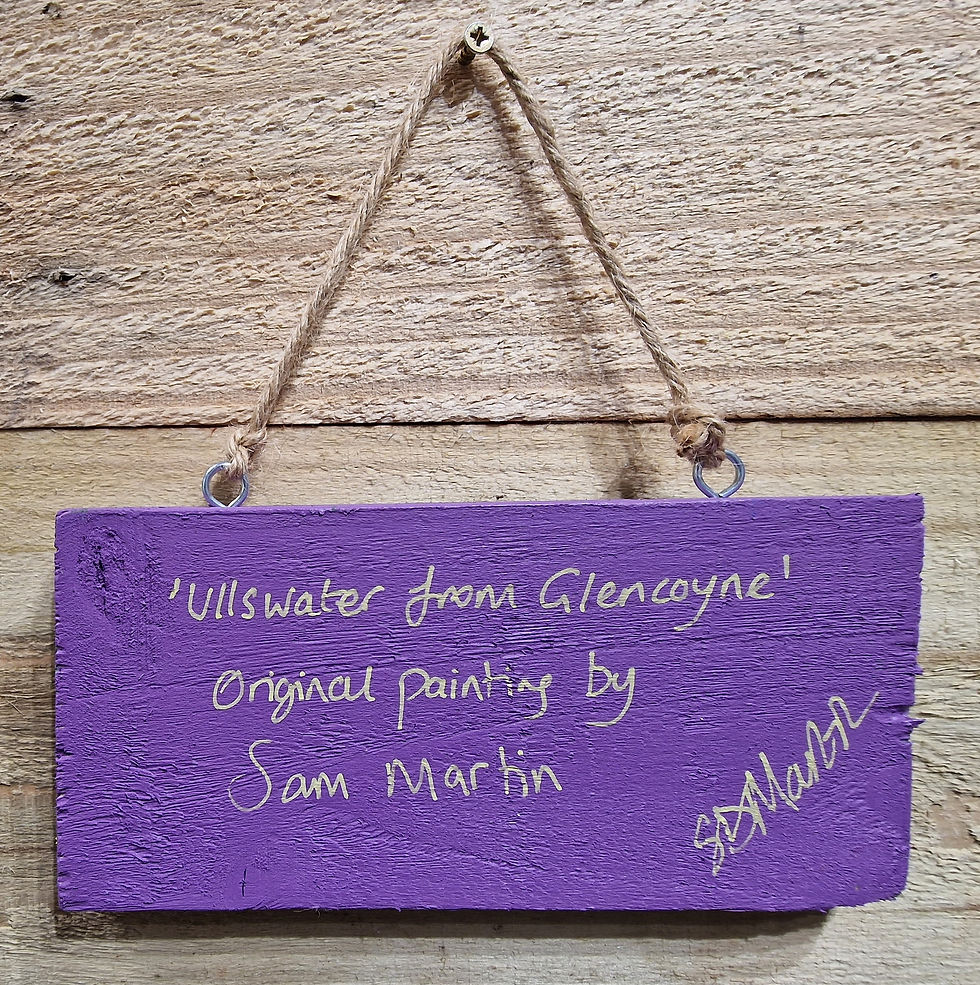 'Ullswater from Glencoyne'
Original painting by
Sam Martin
SDMartin